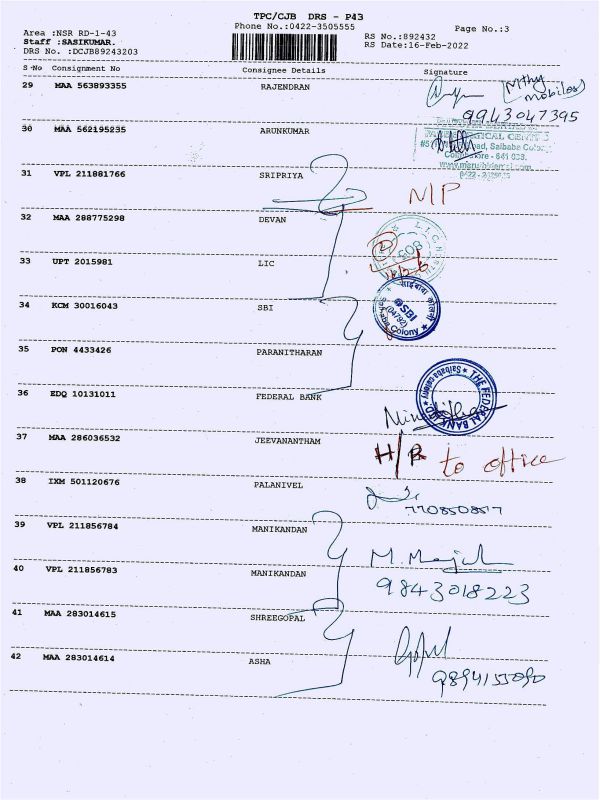 TPC/CJB DRS - P43
Phone No.:0422-3505555
Page No.:3
Area :NSR RD-1-43
Staff :SASIKUMAR.
DRS No. :DCJB89243203
RS No.:892432
RS Date:16-Feb-2022
S No Consignment No Consignee Details Signature
29 MAA 563893355 RAJENDRAN
(Mthy mobiles)
9943047395
30 MAA 562195235 ARUNKUMAR
Saibaba Colony
Coimbatore - 641 038.
31 VPL 211881766 SRIPRIYA
N/P
32 MAA 288775298 DEVAN
33 UPT 2015981 LIC
L.I.C.
34 KCM 30016043 SBI
साईबाबा कालोनी
SBI
(04792)
Saibaba Colony
35 PON 4433426 PARANITHARAN
36 EDQ 10131011 FEDERAL BANK
THE FEDERAL BANK LTD.
Saibaba Colony
37 MAA 286036532 JEEVANANTHAM
H/R to office
38 IXM 501120676 PALANIVEL
7708508517
39 VPL 211856784 MANIKANDAN
40 VPL 211856783 MANIKANDAN
9843018223
41 MAA 283014615 SHREEGOPAL
42 MAA 283014614 ASHA
9894155090